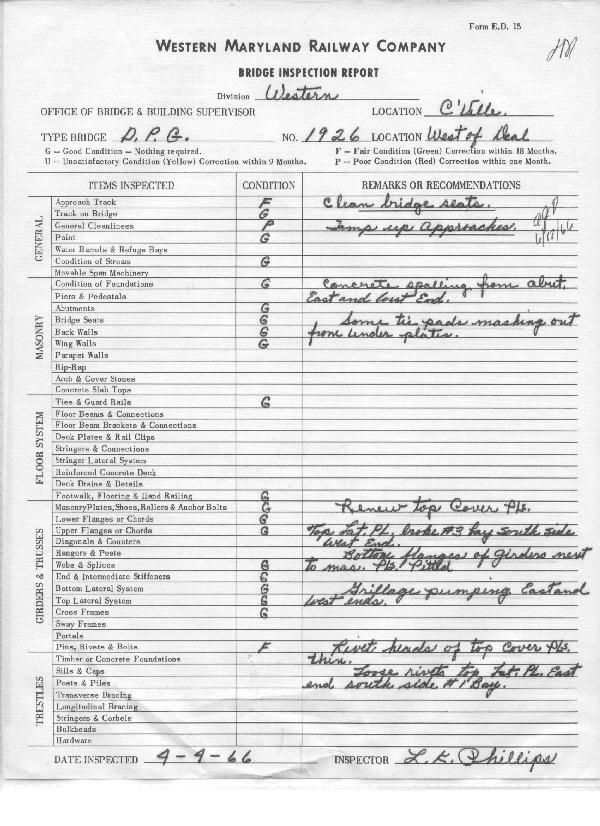 Form E.D. 15
WESTERN MARYLAND RAILWAY COMPANY
BRIDGE INSPECTION REPORT
Division Western
OFFICE OF BRIDGE & BUILDING SUPERVISOR LOCATION C'Ville.
TYPE BRIDGE D.P.G. NO. 1926 LOCATION West of Deal
G -- Good Condition -- Nothing required. F -- Fair Condition (Green) Correction within 18 Months.
U -- Unsatisfactory Condition (Yellow) Correction within 9 Months. P -- Poor Condition (Red) Correction within one Month.
ITEMS INSPECTED CONDITION REMARKS OR RECOMMENDATIONS
GENERAL
Approach Track F Clean bridge seats.
Track on Bridge G
General Cleanliness P Tamp up Approaches.
Paint G 6/15/66
Water Barrels & Refuge Bays
Condition of Stream G
Movable Span Machinery
MASONRY
Condition of Foundations G Concrete spalling from abut.
Piers & Pedestals East and West End.
Abutments G
Bridge Seats G Some tie pads mashing out
Back Walls G from under plates.
Wing Walls G
Parapet Walls
Rip-Rap
Arch & Cover Stones
Concrete Slab Tops
FLOOR SYSTEM
Ties & Guard Rails G
Floor Beams & Connections
Floor Beam Brackets & Connections
Deck Plates & Rail Clips
Stringers & Connections
Stringer Lateral System
Reinforced Concrete Deck
Deck Drains & Details
Footwalk, Flooring & Hand Railing G
GIRDERS & TRUSSES
Masonry Plates, Shoes, Rollers & Anchor Bolts G Renew top Cover Pls.
Lower Flanges or Chords G
Upper Flanges or Chords G Top Lat. PL. broke #3 bay South side
Diagonals & Counters West End.
Hangers & Posts Bottom flanges of Girders next
Webs & Splices G to mas. Pls. Pitted
End & Intermediate Stiffeners G
Bottom Lateral System G Grillage pumping East and
Top Lateral System G West ends.
Cross Frames G
Sway Frames
Portals
Pins, Rivets & Bolts F Rivet heads of top Cover Pls.
TRESTLES
Timber or Concrete Foundations thin.
Sills & Caps Loose rivets top Lat. PL. East
Posts & Piles end south side #1 Bay.
Transverse Bracing
Longitudinal Bracing
Stringers & Corbels
Bulkheads
Hardware
DATE INSPECTED 4-4-66 INSPECTOR L.E. Phillips